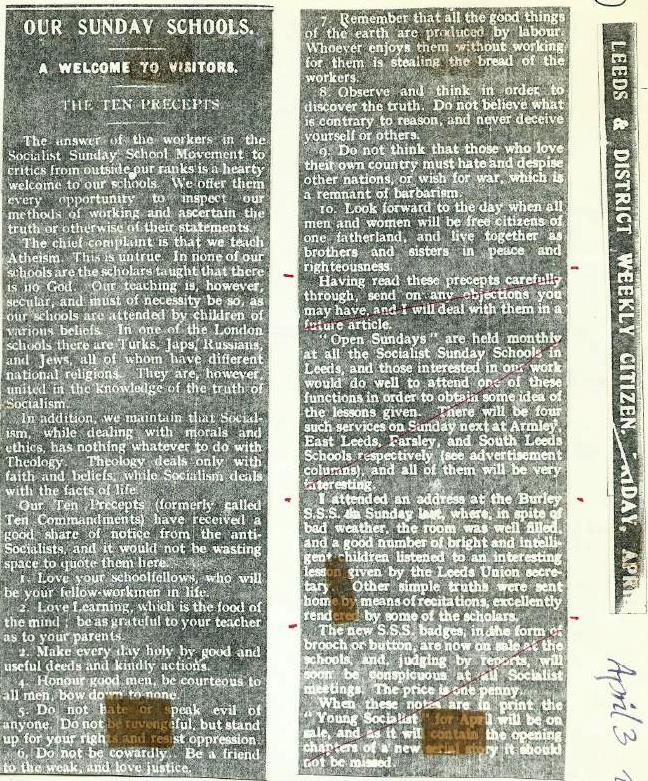 OUR SUNDAY SCHOOLS.
A WELCOME TO VISITORS.
THE TEN PRECEPTS
The answer of the workers in the
Socialist Sunday School Movement to
critics from outside our ranks is a hearty
welcome to our schools. We offer them
every opportunity to inspect our
methods of working and ascertain the
truth or otherwise of their statements.
The chief complaint is that we teach
Atheism. This is untrue. In none of our
schools are the scholars taught that there
is no God. Our teaching is, however,
secular, and must of necessity be so, as
our schools are attended by children of
various beliefs. In one of the London
schools there are Turks, Japs, Russians,
and Jews, all of whom have different
national religions. They are, however,
united in the knowledge of the truth of
Socialism.
In addition, we maintain that Social-
ism, while dealing with morals and
ethics, has nothing whatever to do with
Theology. Theology deals only with
faith and beliefs, while Socialism deals
with the facts of life.
Our Ten Precepts (formerly called
Ten Commandments) have received a
good share of notice from the anti-
Socialists, and it would not be wasting
space to quote them here.
1. Love your schoolfellows, who will
be your fellow-workmen in life.
2. Love Learning, which is the food of
the mind; be as grateful to your teacher
as to your parents.
2. Make every day holy by good and
useful deeds and kindly actions.
4. Honour good men, be courteous to
all men, bow down to none.
5. Do not hate or speak evil of
anyone. Do not be revengeful, but stand
up for your rights and resist oppression.
6. Do not be cowardly. Be a friend
to the weak, and love justice.
7. Remember that all the good things
of the earth are produced by labour.
Whoever enjoys them without working
for them is stealing the bread of the
workers.
8. Observe and think in order to
discover the truth. Do not believe what
is contrary to reason, and never deceive
yourself or others.
9. Do not think that those who love
their own country must hate and despise
other nations, or wish for war, which is
a remnant of barbarism.
10. Look forward to the day when all
men and women will be free citizens of
one fatherland, and live together as
brothers and sisters in peace and
righteousness.
Having read these precepts carefully
through, send on any objections you
may have, and I will deal with them in a
future article.
"Open Sundays" are held monthly
at all the Socialist Sunday Schools in
Leeds, and those interested in our work
would do well to attend one of these
functions in order to obtain some idea of
the lessons given. There will be four
such services on Sunday next at Armley,
East Leeds, Farsley, and South Leeds
Schools respectively (see advertisement
columns), and all of them will be very
interesting.
I attended an address at the Burley
S.S.S. on Sunday last, where, in spite of
bad weather, the room was well filled,
and a good number of bright and intelli-
gent children listened to an interesting
lesson given by the Leeds Union secre-
tary. Other simple truths were sent
home by means of recitations, excellently
rendered by some of the scholars.
The new S.S.S. badges, in the form of
brooch or button, are now on sale at the
schools, and, judging by reports, will
soon be conspicuous at all Socialist
meetings. The price is one penny.
When these notes are in print the
"Young Socialist" for April will be on
sale, and as it will contain the opening
chapters of a new serial story it should
not be missed.
LEEDS & DISTRICT WEEKLY CITIZEN, FRIDAY, APR
April 3